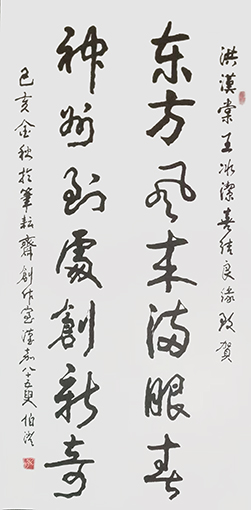 洪漢棠王冰潔喜结良緣致賀
东方风来满眼春
神州到處創新奇
己亥金秋於筆耘齋創作室八十五叟伯